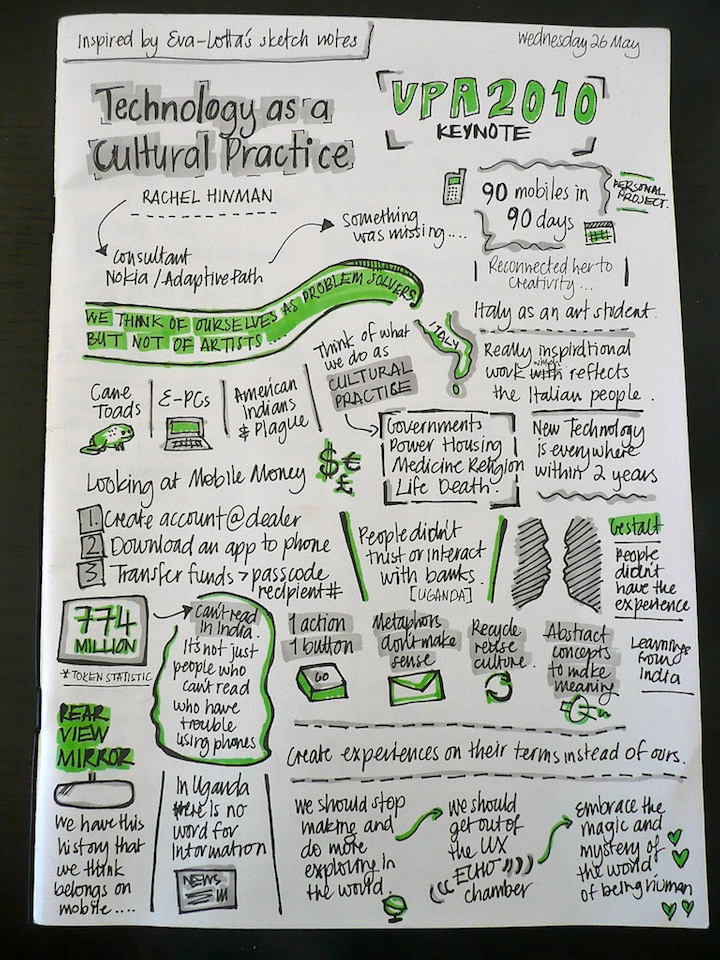 Inspired by Eva-Lotta's sketch notes
Wednesday 26 May
Technology as a
Cultural Practice
UPA 2010
KEYNOTE
RACHEL HINMAN
consultant
Nokia / Adaptive Path
Something
was missing....
90 mobiles in
90 days
PERSONAL
PROJECT.
Reconnected her to
creativity...
Italy as an art student.
WE THINK OF OURSELVES AS PROBLEM SOLVERS
BUT NOT OF ARTISTS ....
ITALY
Really inspirational
work which reflects
the Italian people.
Think of what
we do as
CULTURAL
PRACTICE
Cane
Toads
E-PCs
American
Indians
& Plague
Governments
Power Housing
Medicine Religion
Life Death.
New Technology
is everywhere
within 2 years
Looking at Mobile Money
$ €
£
1. Create account @ dealer
2 Download an app to phone
3. Transfer funds > passcode
recipient #
People didn't
trust or interact
with banks.
[UGANDA]
Gestalt
People
didn't
have the
experience
774
MILLION
* TOKEN STATISTIC
Can't read
in India.
It's not just
people who
can't read
who have
trouble
using phones
1 action
1 button
GO
Metaphors
don't make
sense
Recycle
reuse
culture.
Abstract
concepts
to make
meaning
Learnings
from
India
REAR
VIEW
MIRROR
We have this
history that
we think
belongs on
mobile....
In Uganda
there is no
word for
Information
NEWS
Create experiences on their terms instead of ours.
We should stop
making and
do more
exploring in
the world.
We should
get out of
the UX
ECHO
chamber
Embrace the
magic and
mystery of
the world
of being human